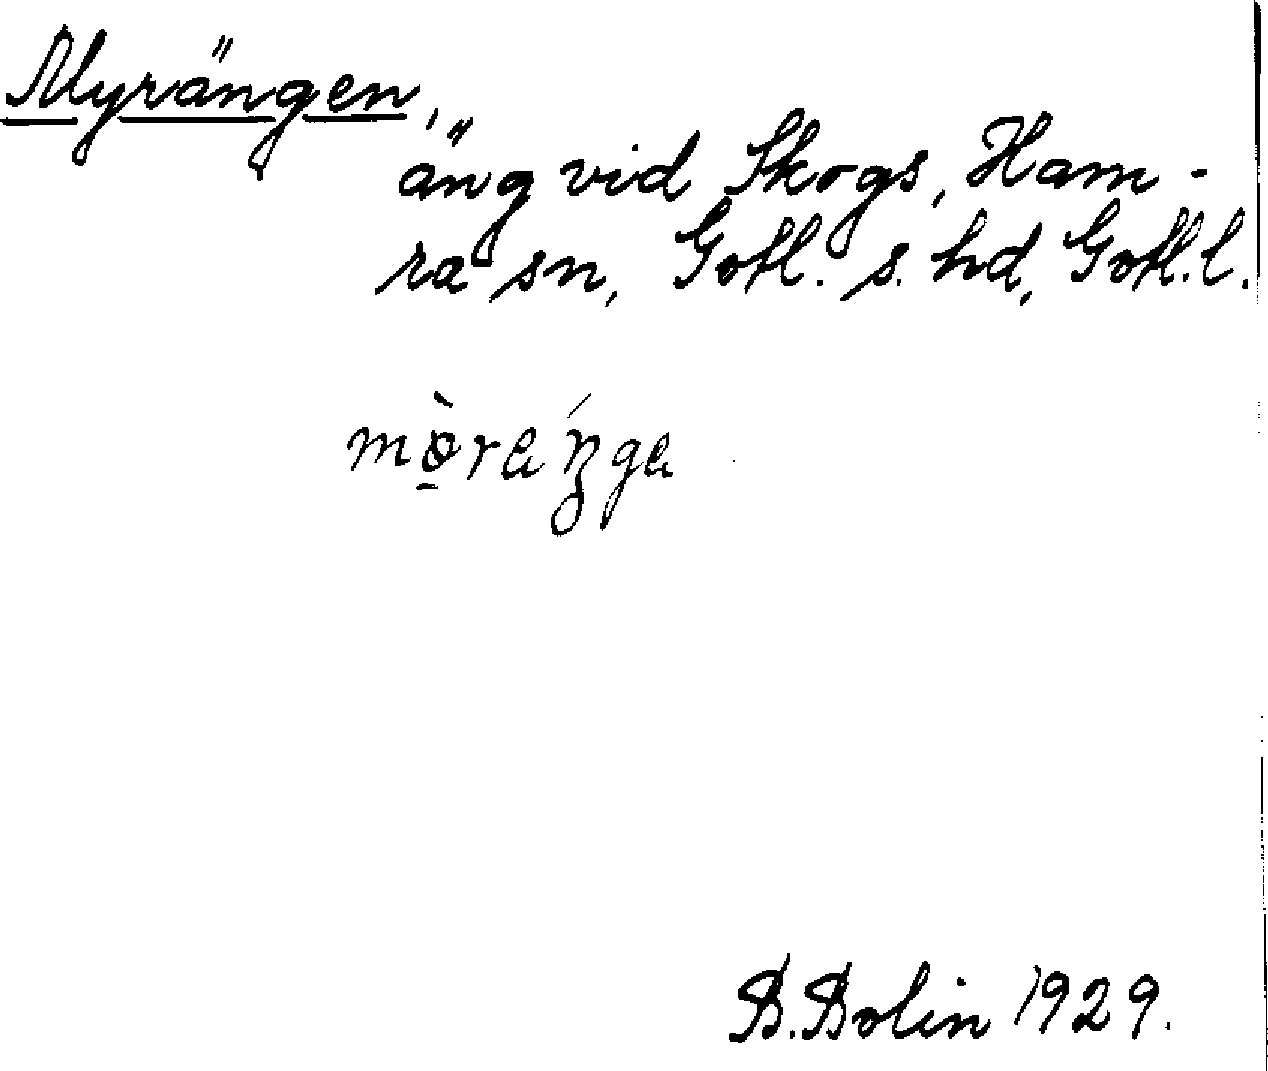 Myrängen,
äng vid Skogs, Ham-
ra sn, Gotl. s. hd, Gotl. l.
B. Bolin 1929.